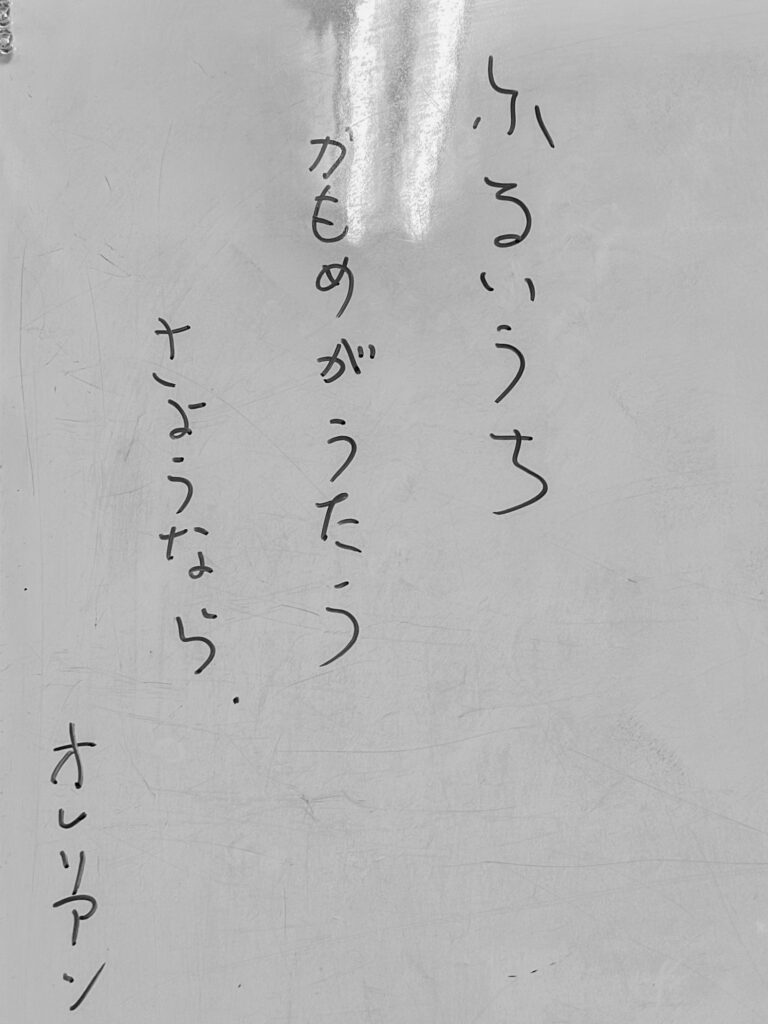 ふるいうち
かもめがうたう
さようなら.
オレリアン